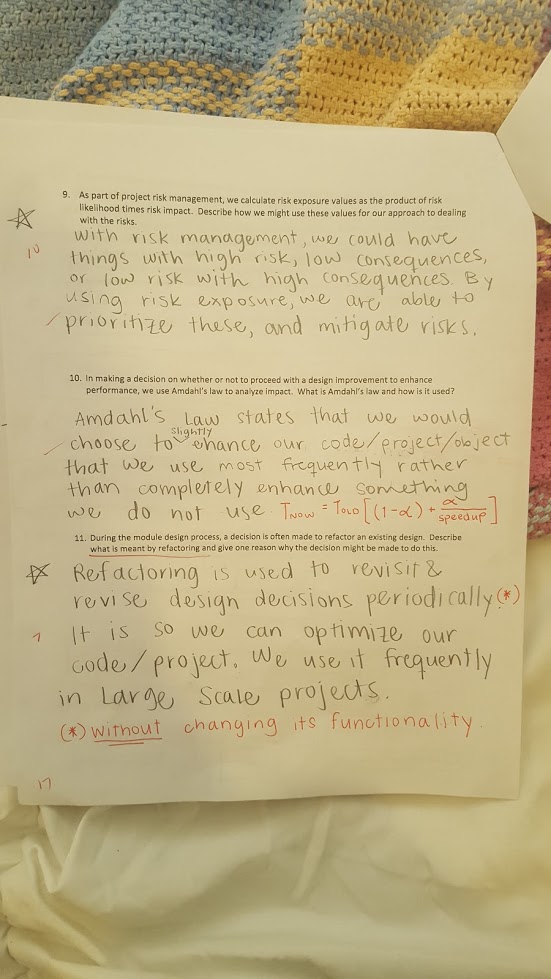 9. As part of project risk management, we calculate risk exposure values as the product of risk
likelihood times risk impact. Describe how we might use these values for our approach to dealing
with the risks.
10
with risk management, we could have
things with high risk, low consequences,
or low risk with high consequences. By
using risk exposure, we are able to
prioritize these, and mitigate risks.
10. In making a decision on whether or not to proceed with a design improvement to enhance
performance, we use Amdahl's law to analyze impact. What is Amdahl's law and how is it used?
Amdahl's Law states that we would
slightly
choose to ehance our code/project/object
that we use most frequently rather
than completely enhance something
we do not use TNOW = TOLD [(1-α) + α/speedup]
11. During the module design process, a decision is often made to refactor an existing design. Describe
what is meant by refactoring and give one reason why the decision might be made to do this.
Refactoring is used to revisit &
revise design decisions periodically (*)
7
It is so we can optimize our
code/project. We use it frequently
in Large Scale projects.
(*) without changing its functionality.
17